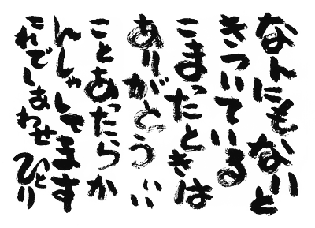 なんにもないと
きついている
こまったときは
ありがとうい
ことあったらか
んしゃしてます
これでしあわせ ひとり